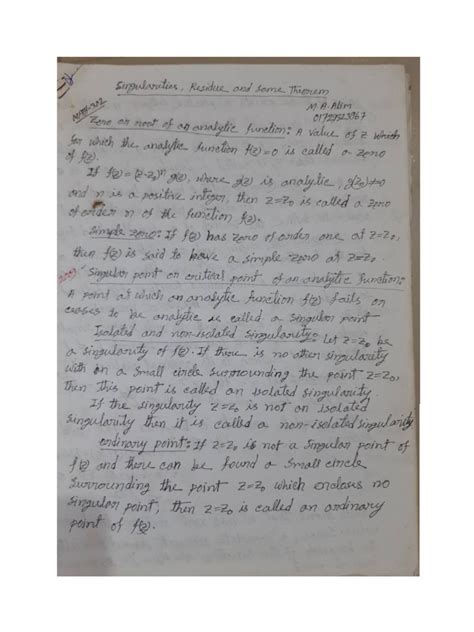 Singularities, Residue and Some Theorem
M.A. Alim
Zero or root of an analytic function: A value of z which
for which the analytic function f(z)=0 is called a zero
of f(z).
If f(z)=(z-z₀)ⁿ g(z), where g(z) is analytic, g(z₀)≠0
and n is a positive integer, then z=z₀ is called a zero
of order n of the function f(z).
Simple zero: If f(z) has zero of order one at z=z₀,
then f(z) is said to have a simple zero at z=z₀.
Singular point or critical point of an analytic function:
A point at which an analytic function f(z) fails or
ceases to be analytic is called a singular point
Isolated and non-isolated singularity: Let z=z₀ be
a singularity of f(z). If there is no other singularity
with in a small circle surrounding the point z=z₀,
then this point is called an isolated singularity.
If the singularity z=z₀ is not an isolated
singularity then it is called a non-isolated singularity
ordinary point: If z=z₀ is not a singular point of
f(z) and there can be found a small circle
surrounding the point z=z₀ which encloses no
singular point, then z=z₀ is called an ordinary
point of f(z).